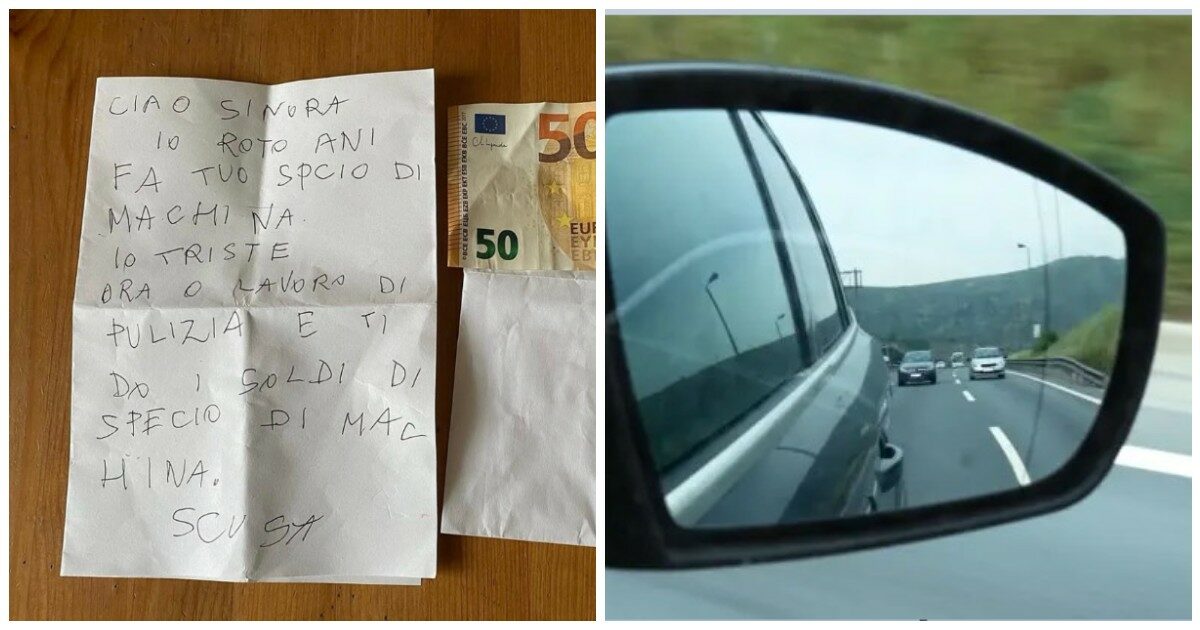 CIAO SINORA
IO ROTO ANI
FA TUO SPCIO DI
MACHINA.
IO TRISTE
ORA O LAVORO DI
PULIZIA E TI
DO I SOLDI DI
SPECIO DI MAC
HINA.
SCUSA
50
EUR
50